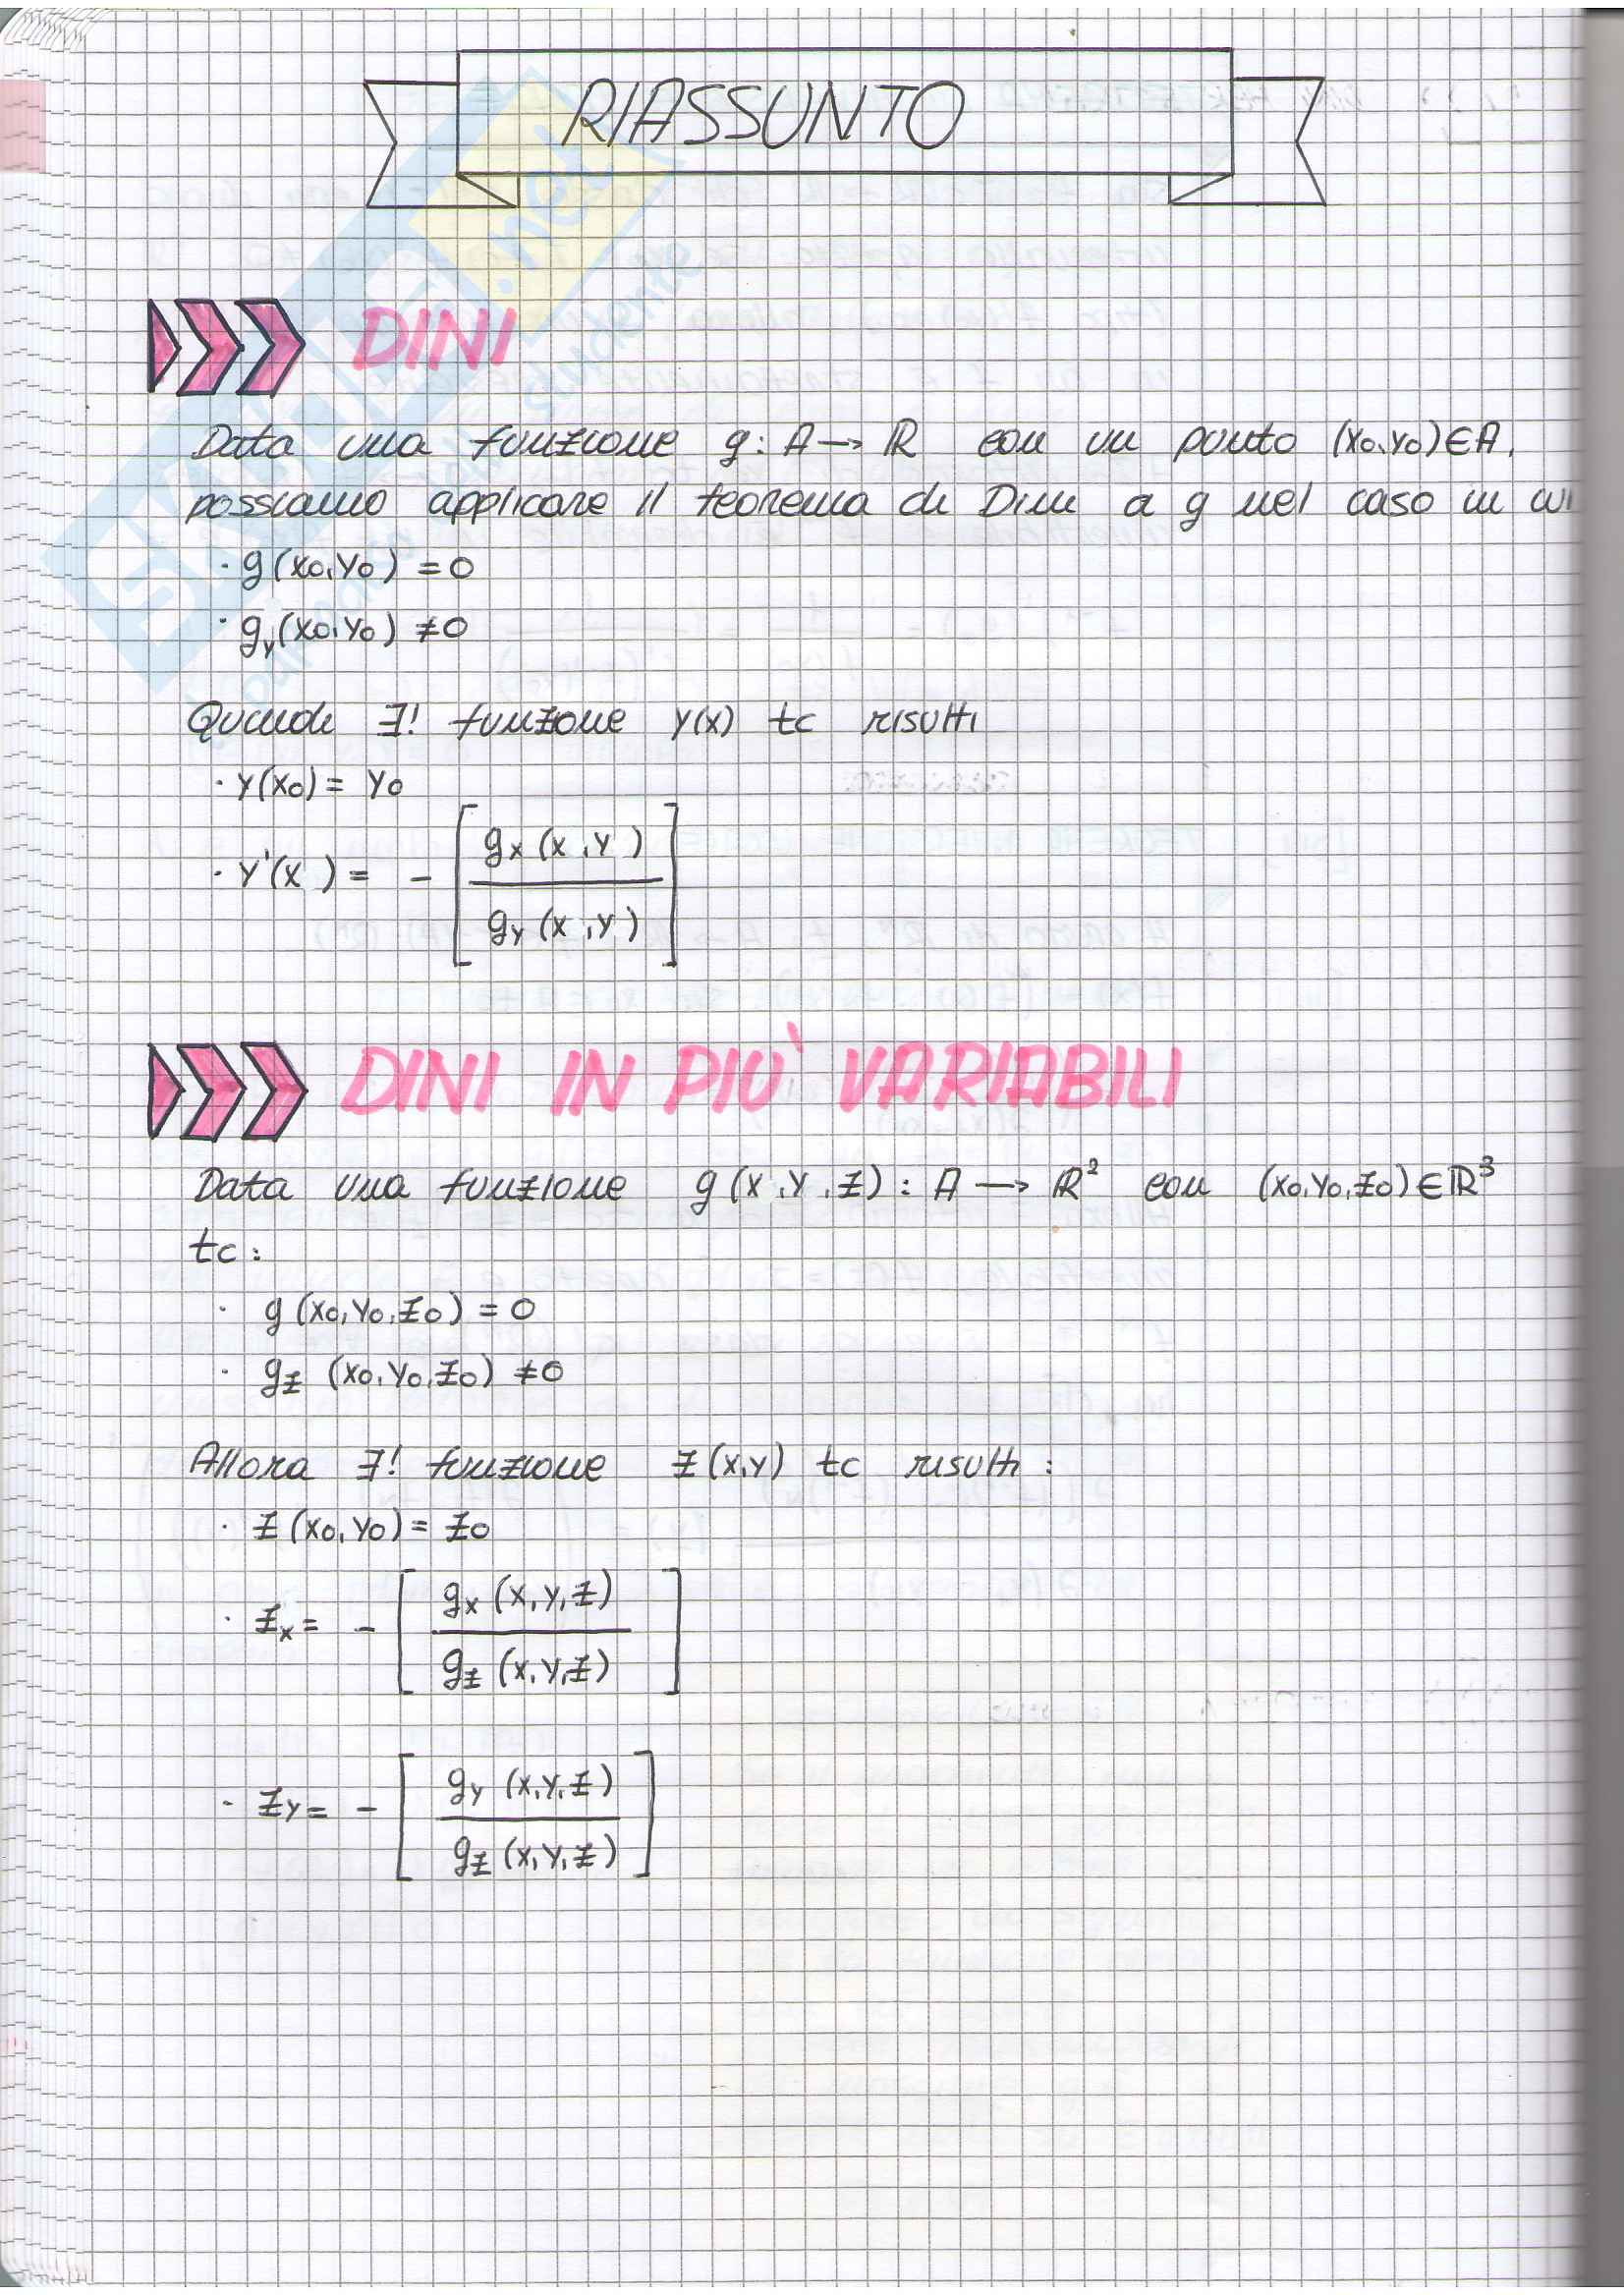 RIASSUNTO
DINI
Data una funzione g: A → ℝ con un punto (x₀,y₀)∈A,
possiamo applicare il teorema di Dini a g nel caso in cui
· g(x₀,y₀) = 0
· g_y(x₀,y₀) ≠0
Quindi ∃! funzione y(x) tc risulti
· y(x₀) = y₀
· y'(x ) = - [ g_x (x ,y ) / g_y (x ,y ) ]
DINI IN PIU' VARIABILI
Data una funzione g(x,y,z): A → ℝ² con (x₀,y₀,z₀)∈ℝ³
tc:
· g(x₀,y₀,z₀) = 0
· g_z (x₀,y₀,z₀) ≠0
Allora ∃! funzione z(x,y) tc risulti :
· z(x₀,y₀) = z₀
· z_x = - [ g_x (x,y,z) / g_z (x,y,z) ]
· z_y = - [ g_y (x,y,z) / g_z (x,y,z) ]